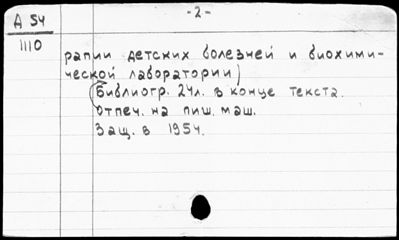 -2-
Д 54
1110
рапии детских болезней и биохими-
ческой лаборатории)
(Библиогр. 24л. в конце текста.
Отпеч. на пиш. маш.
Защ. в 1954.